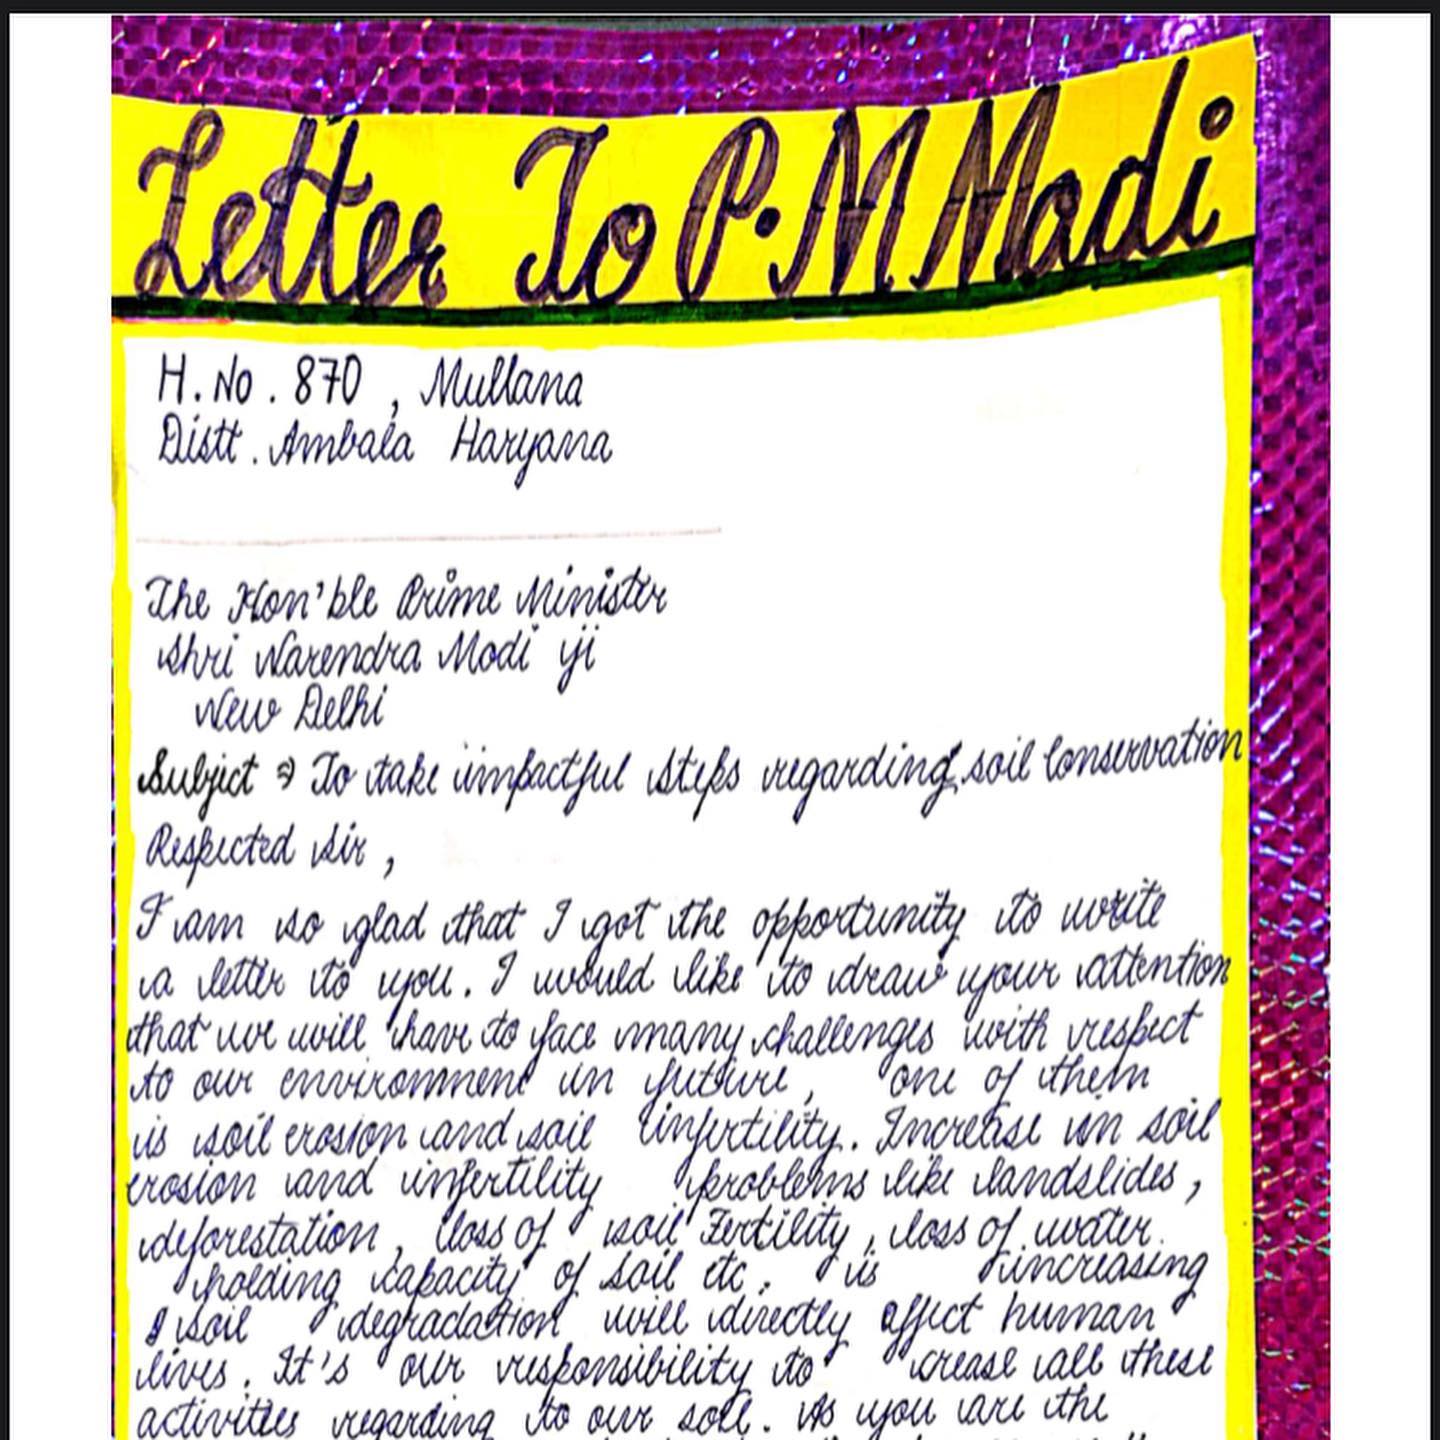 Letter To P.M Modi
H. No. 870, Mullana
Distt. Ambala Haryana
The Hon'ble Prime Minister
Shri Narendra Modi ji
New Delhi
Subject ⇒ To take impactful steps regarding soil Conservation
Respected sir,
I am so glad that I got the opportunity to write
a letter to you. I would like to draw your attention
that we will have to face many challenges with respect
to our environment in future, one of them
is soil erosion and soil infertility. Increase in soil
erosion and infertility problems like landslides,
deforestation, loss of soil Fertility, loss of water
holding capacity of soil etc. is increasing
soil degradation will directly affect human
lives. It's our responsibility to crease all these
activities regarding to our soil. As you are the